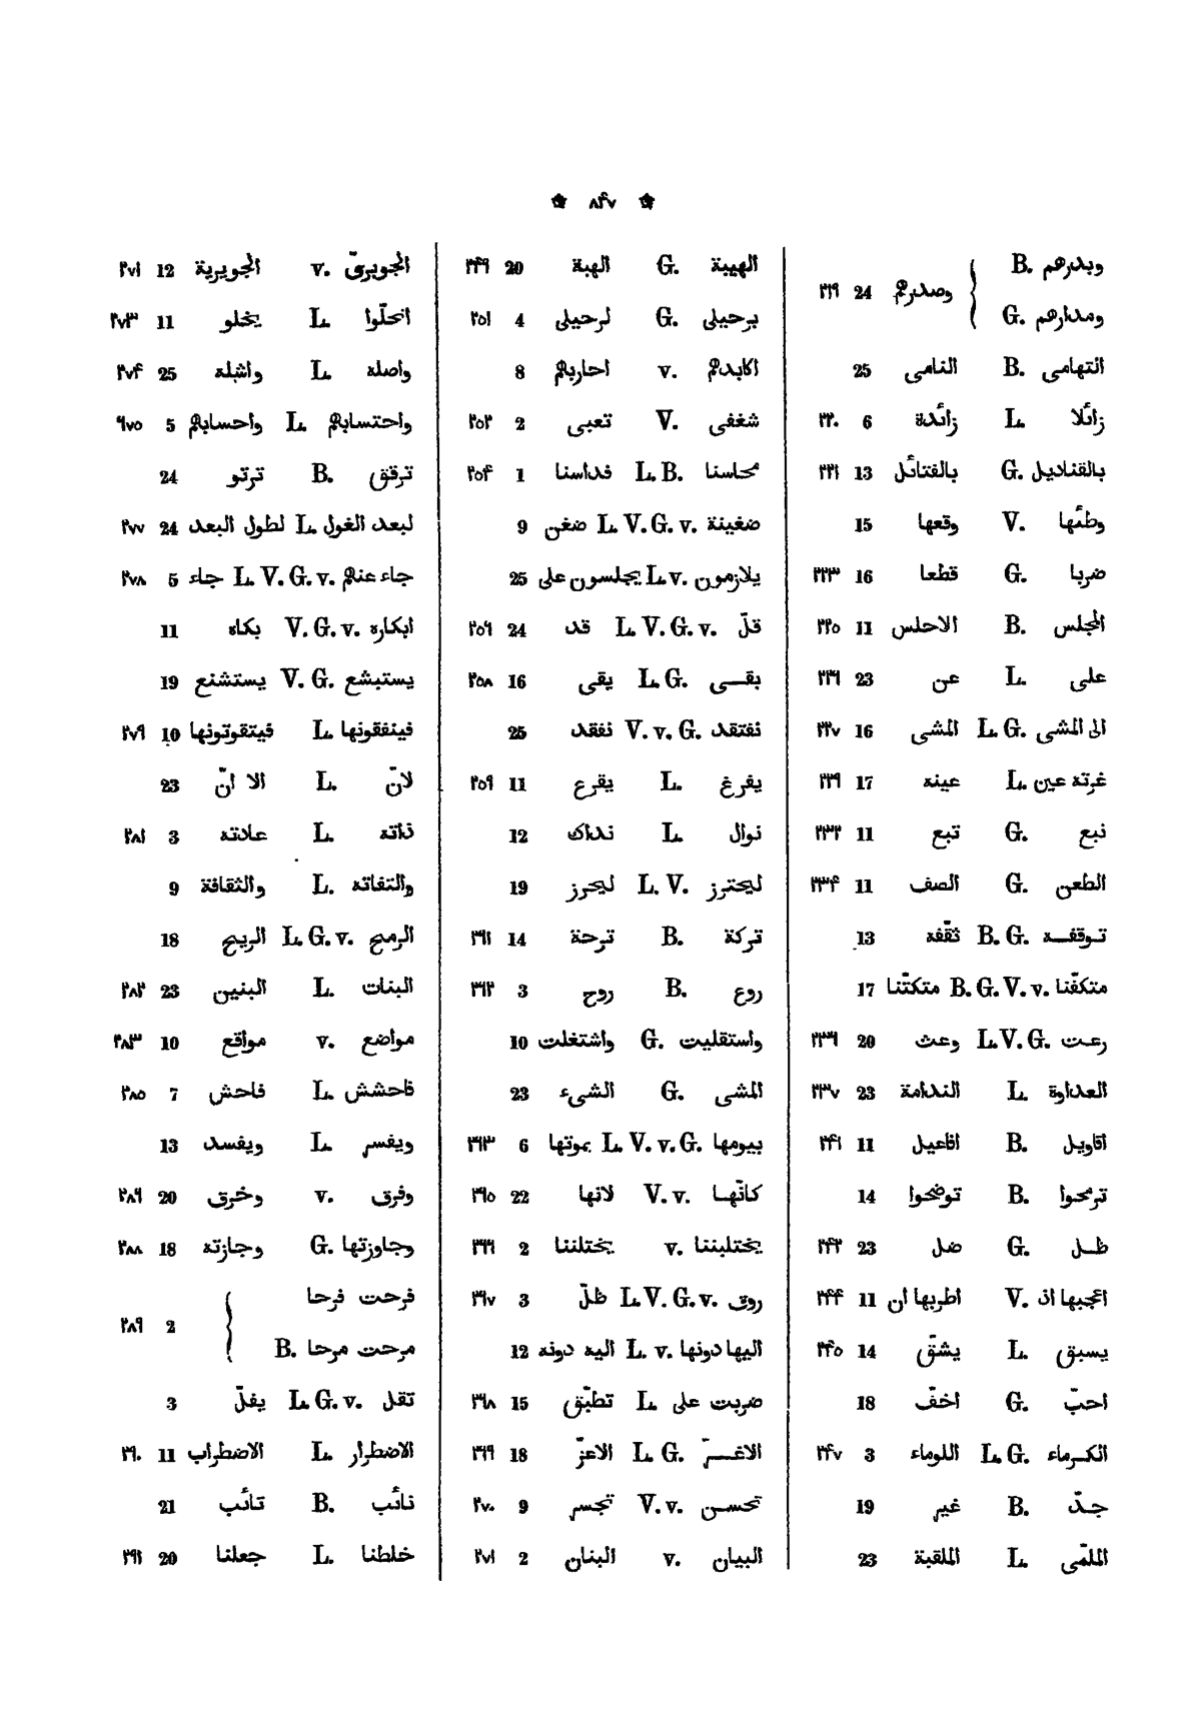 ٨٤٧
وبدرهم B.
وصدرهم 24 ٢١٩
ومدارهم G.
التهامى B. النامى 25
زائلا L. زائدة 6 ٢٢٠
بالقناديل G. بالفتائل 13 ٢٢١
وطئها V. وقعها 15
ضربا G. قطعا 16 ٢٢٣
المجلس B. الاحلس 11 ٢٢٥
على L. عن 23 ٢٢٦
الى المشى L. G. المشى 16 ٢٢٧
غرته عين L. عينه 17 ٢٢٩
نبع G. تبع 11 ٢٣٢
الطعن G. الصف 11 ٢٣٤
توقفه B. G. ثقّفه 13
متكفّنا B. G. V. v. متكنّنا 17
رعت L. V. G. وعث 20 ٢٣٦
العداوة L. الندامة 23 ٢٣٧
اقاويل B. افاعيل 11 ٢٤١
ترمحوا B. توضحوا 14
ظل G. ضل 23 ٢٤٣
اعجبها اذ V. اطربها ان 11 ٢٤٤
يسبق L. يشقّ 14 ٢٤٥
احبّ G. اخفّ 18
الكرماء L. G. اللوماء 3 ٢٤٧
جدّ B. غير 19
الملمّى L. الملقبة 23
الهيبة G. الهبة 20 ٢٤٩
برحيلى G. لرحيلى 4 ٢٥١
اكابدهم v. احاربهم 8
شغفى V. تعبى 2 ٢٥٢
محاسنا L. B. فداسنا 1 ٢٥٤
ضغينة L. V. G. v. ضغن 9
يلازمون L. v. يجلسون على 25
قلّ L. V. G. v. قد 24 ٢٥٦
بقى L. G. يقى 16 ٢٥٨
نفتقد V. v. G. نفقد 25
يفرغ L. يقرع 11 ٢٥٩
نوال L. نداك 12
ليحترز L. V. ليحرز 19
تركة B. ترحة 14 ٢٦١
روع B. روح 3 ٢٦٢
واستقليت G. واشتغلت 10
المشى G. الشىء 23
بيومها L. V. v. G. بموتها 6 ٢٦٣
كانّها V. v. لانها 22 ٢٦٥
يختلبننا v. يختلننا 2 ٢٦٦
روق L. V. G. v. ظلّ 3 ٢٦٧
اليها دونها L. v. اليه دونه 12
ضربت على L. تطبّق 15 ٢٦٨
الاغرّ L. G. الاعزّ 18 ٢٦٩
تحسن V. v. تجسر 9 ٢٧٠
البيان v. البنان 2 ٢٧١
الجويرىّ v. الجويرية 12 ٢٧١
انحلّوا L. يخلو 11 ٢٧٣
واصله L. واشبله 25 ٢٧٤
واحتسابهم L. واحسابهم 5 ٢٧٥
ترقق B. ترتو 24
لبعد الغول L. لطول البعد 24 ٢٧٧
جاء عنهم L. V. G. v. جاء 5 ٢٧٨
ابكاره V. G. v. بكاه 11
يستبشع V. G. يستشنع 19
فينفقونها L. فيتقوتونها 10 ٢٧٩
لانّ L. الا انّ 23
ذاته L. عادته 3 ٢٨١
والتفاته L. والثقافة 9
الرمح L. G. v. الريح 18
البنات L. البنين 23 ٢٨٢
مواضع v. مواقع 10 ٢٨٣
فاحشش L. فاحش 7 ٢٨٥
ويفسر L. ويفسد 13
وفرق v. وخرق 20 ٢٨٦
وجاوزتها G. وجازته 18 ٢٨٨
فرحت فرحا
2 ٢٨٩
مرحت مرحا B.
تقل L. G. v. يفلّ 3
الاضطرار L. الاضطراب 11 ٢٩٠
نائب B. تائب 21
خلطنا L. جعلنا 20 ٢٩١